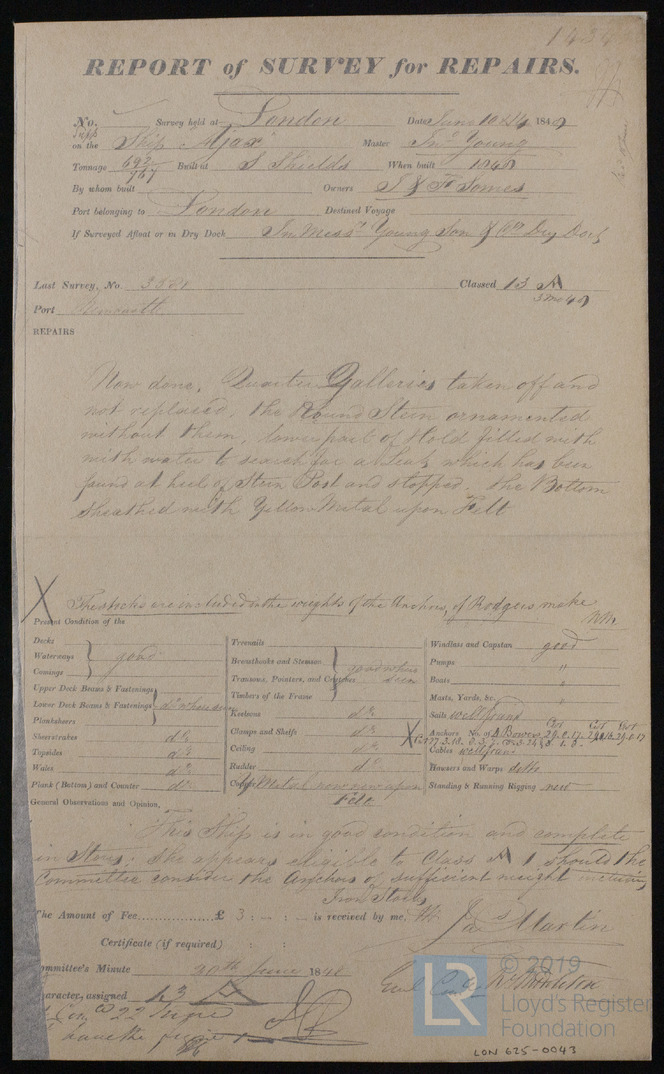 1434
REPORT of SURVEY for REPAIRS.
No. Survey held at London Date June 10 &14 184
on the Ship Ajax Master Jno. Young
Tonnage 692/767 Built at S Shields When built 184
By whom built Owners J & F Somes
Port belonging to London Destined Voyage
If Surveyed Afloat or in Dry Dock In Messrs Young Son & Co Dry Dock
Last Survey, No. Classed 13 A
Port Newcastle
REPAIRS
Now done, Quarter Galleries taken off and
not replaced, the Round Stern ornamented
without them, lower part of Hold filled with
with water to search for a Leak which has been
found at heel of Stern Post and stopped. The Bottom
sheathed with Yellow Metal upon Felt
X The stocks are included in the weights of the Anchors, of Rodgers make
Present Condition of the
Decks
Waterways good
Comings
Upper Deck Beams & Fastenings
Lower Deck Beams & Fastenings do where seen
Planksheers
Sheerstrakes do
Topsides do
Wales do
Plank (Bottom) and Counter do
Treenails
Breasthooks and Stemson good where
Transoms, Pointers, and Crutches seen
Timbers of the Frame
Keelsons do
Clamps and Shelfs do
Ceiling do
Rudder do
Copper Y Metal now new upon
Felt
Windlass and Capstan good
Pumps "
Boats "
Masts, Yards, &c. "
Sails well found
X Anchors No. of 4 Bowers
Cables well found
Hawsers and Warps ditto
Standing & Running Rigging
General Observations and Opinion,
This Ship is in good condition and complete
in Stores. She appears eligible to Class A 1 should the
Committee consider the Anchors of sufficient weight including
Iron Stocks
The Amount of Fee £ 3 : - : - is received by me,
Jas Martin
Certificate (if required) : :
ommittee's Minute 20th June 184
haracter, assigned A
have the
© 2019
LR
Lloyd's Register
Foundation
LON 625-0043